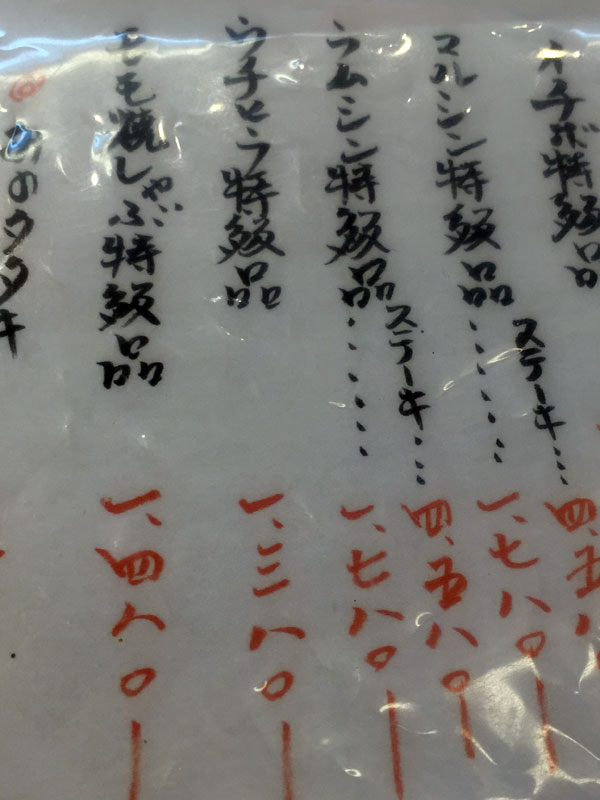 イチボ特級品
ステーキ… 四、五八
マルシン特級品…… 一、七八〇ー
ステーキ… 四、五八〇ー
ラムシン特級品…… 一、七八〇ー
ウチヒラ特級品 一、三八〇ー
モモ焼しゃぶ特級品 一、四八〇ー
のタタキ